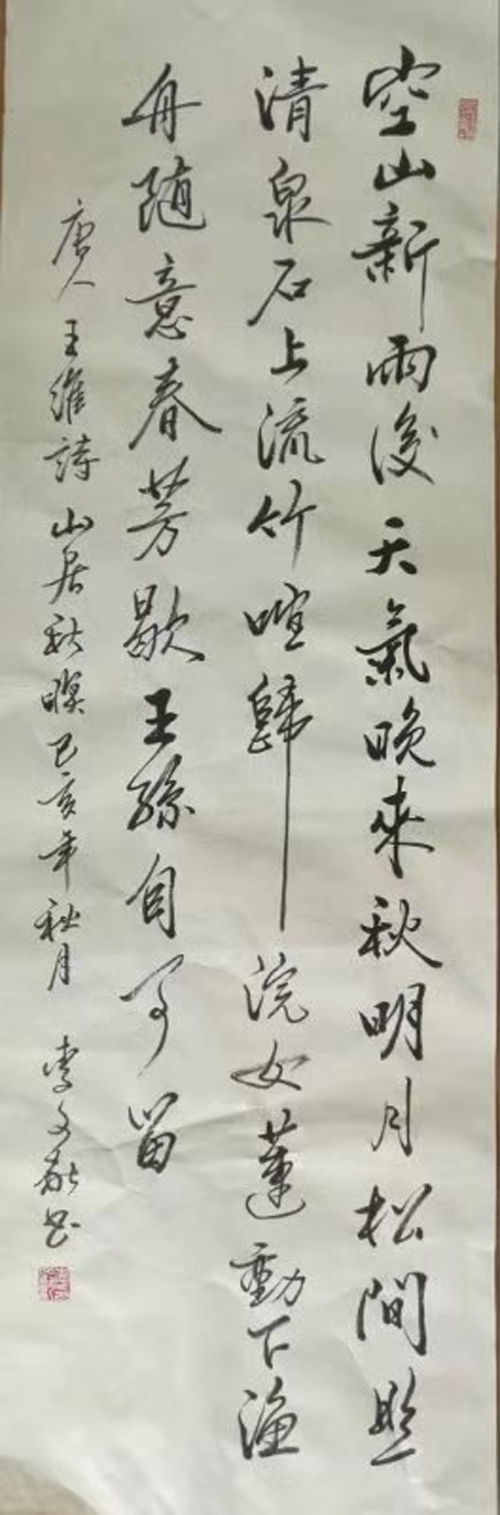 空山新雨後天氣晚來秋明月松間照
清泉石上流竹喧歸浣女蓮動下漁
舟随意春芳歇王孫自可留
唐人王維詩山居秋暝己亥年秋月 李文书